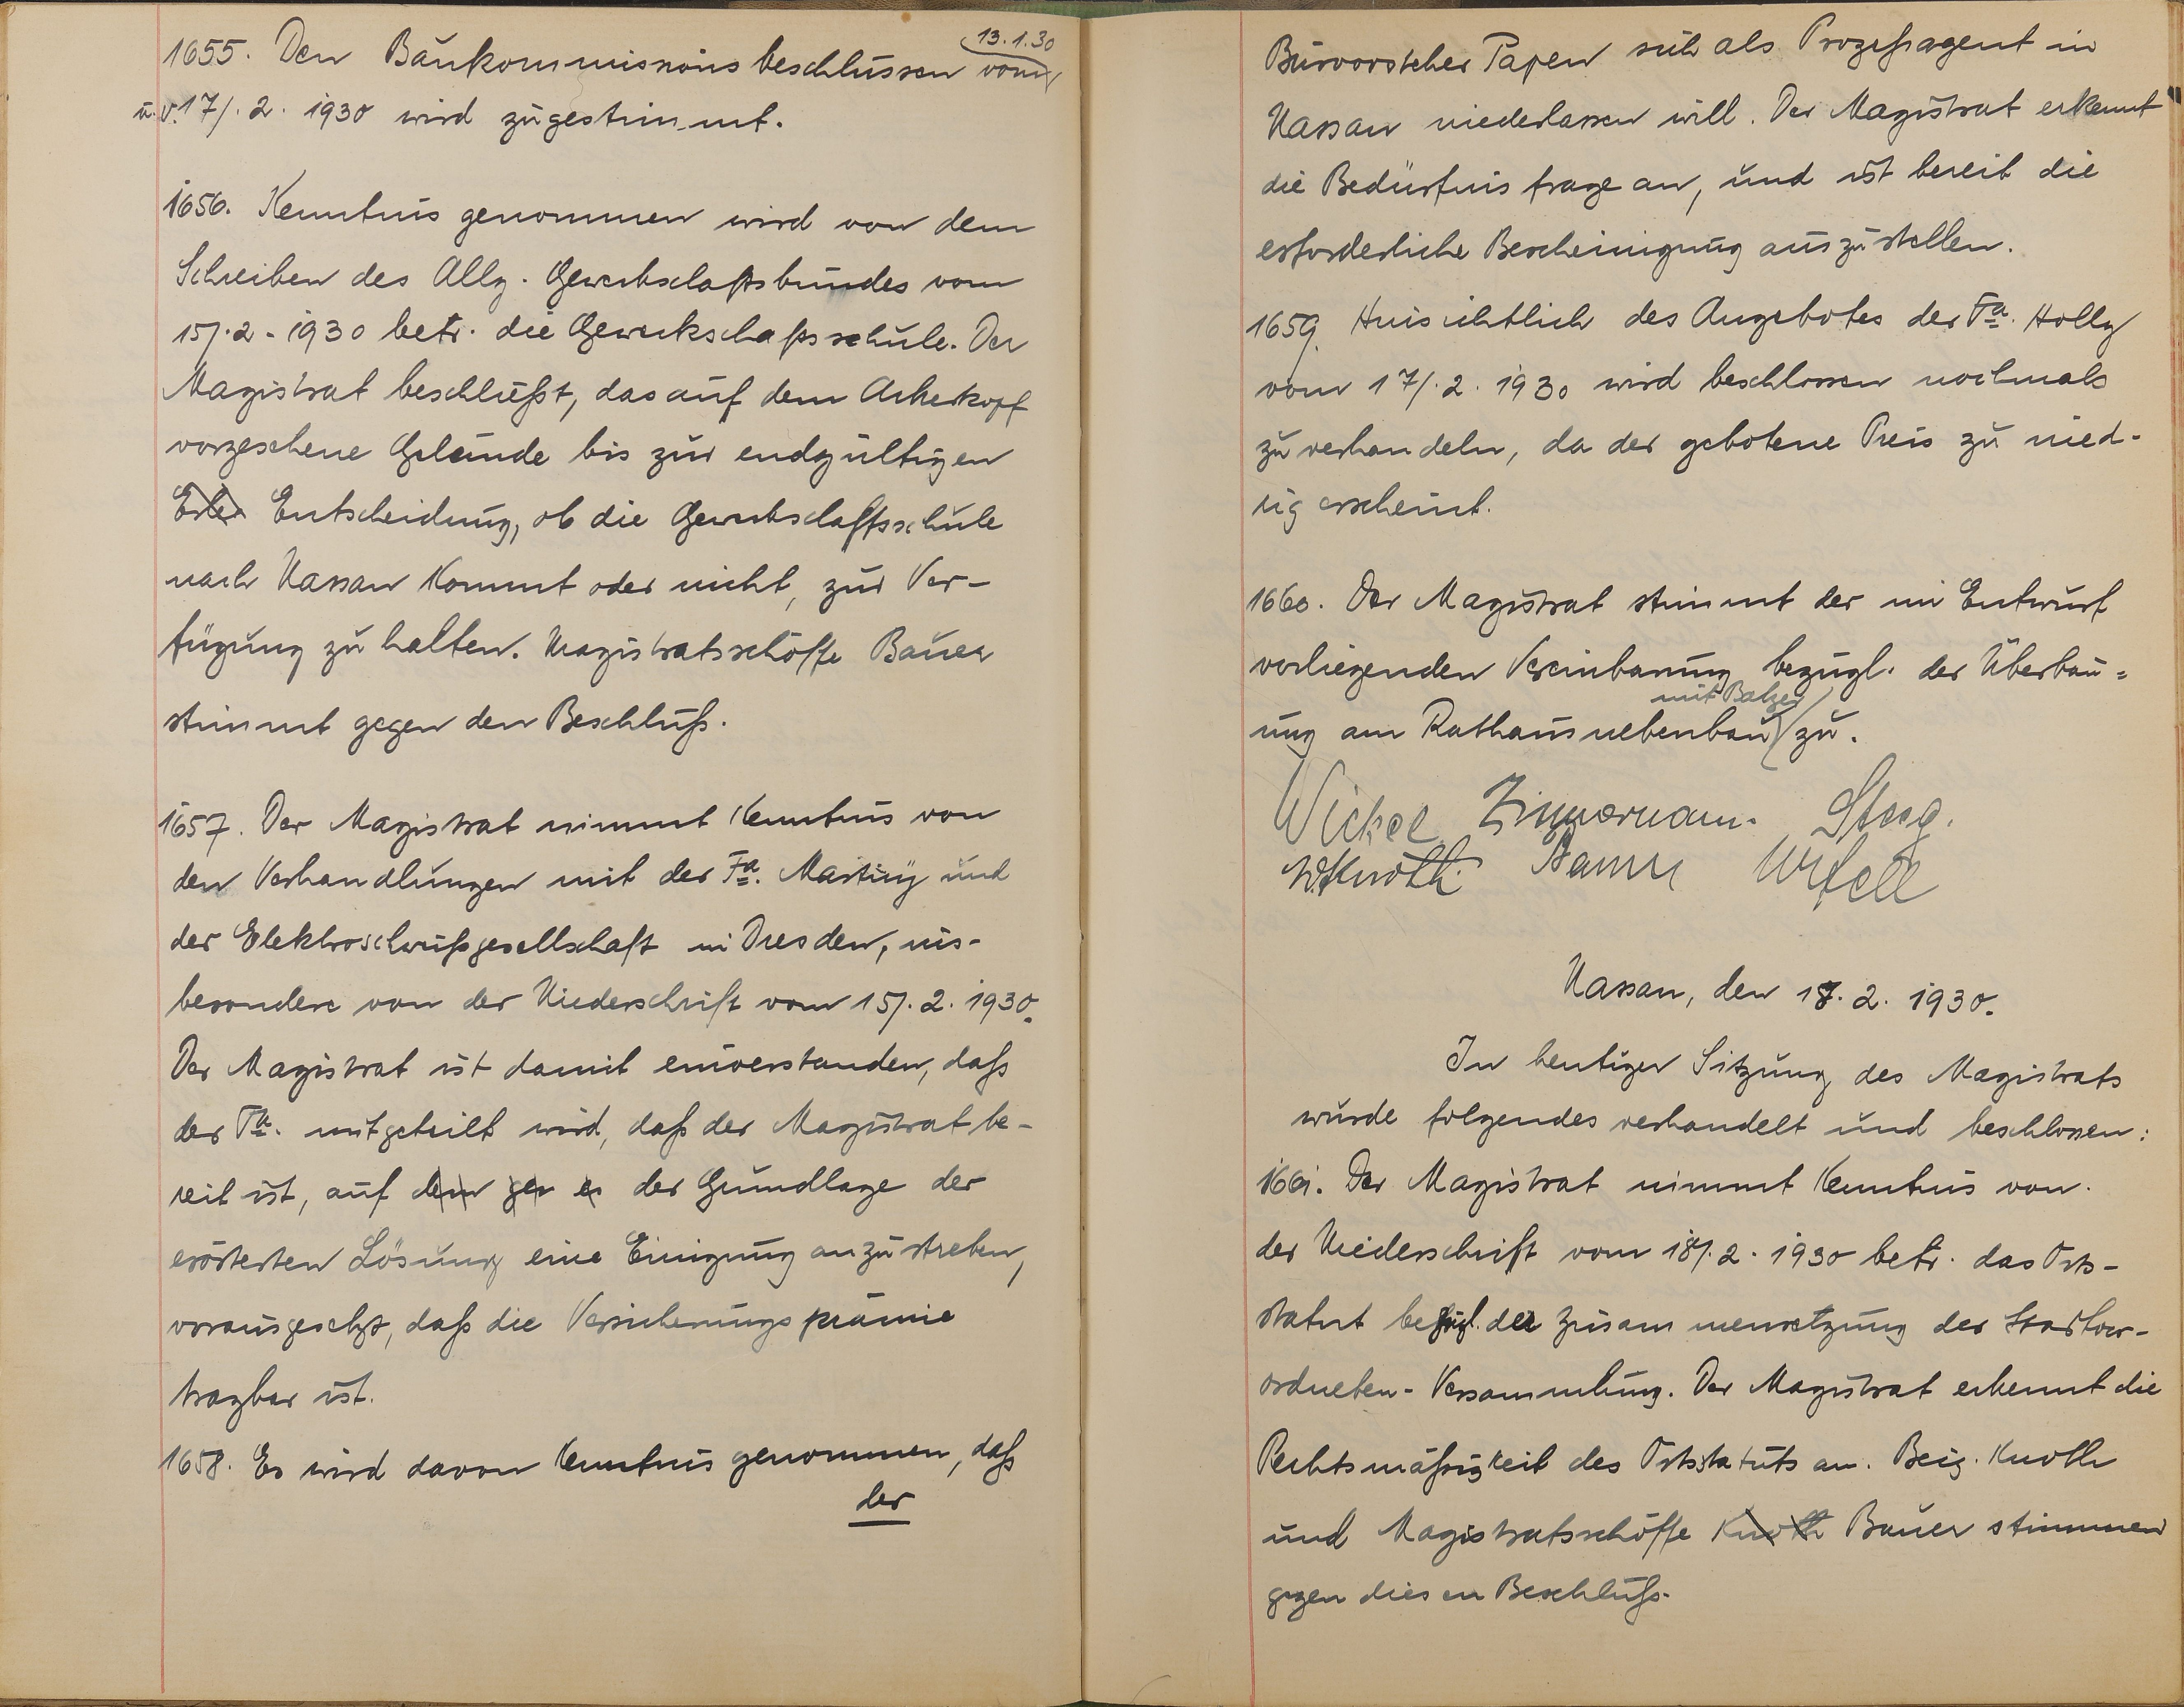 1655. Den Baukommissionsbeschlüssen vom 13.1.30
u. v. 17/.2. 1930 wird zugestimmt.
1656. Kenntnis genommen wird von dem
Schreiben des Allg. Gewerkschaftsbundes vom
15/.2. 1930 betr. die Gewerkschaftsschule. Der
Magistrat beschließt, das auf dem
vorgesehene Gelände bis zur endgültigen
Entscheidung, ob die Gewerkschaftsschule
nach Nassau kommt oder nicht, zur Ver-
fügung zu halten. Magistratsschöffe Bauer
stimmt gegen den Beschluß.
1657. Der Magistrat nimmt Kenntnis von
den Verhandlungen mit der Fa. Martiny und
der Elektroschweißgesellschaft in Dresden, ins-
besondere von der Niederschrift vom 15/.2. 1930.
Der Magistrat ist damit einverstanden, daß
der Fa. mitgeteilt wird, daß der Magistrat be-
reit ist, auf der Grundlage der
erörterten Lösung eine Einigung anzustreben,
vorausgesetzt, daß die Versicherungsprämie
tragbar ist.
1658. Es wird davon Kenntnis genommen, daß
der
Bürovorsteher Papen sich als Prozeßagent in
Nassau niederlassen will. Der Magistrat erkennt
die Bedürfnisfrage an, und ist bereit die
erforderliche Bescheinigung auszustellen.
1659. Hinsichtlich des Angebotes der Fa. Holly
vom 17/.2. 1930 wird beschlossen nochmals
zu verhandeln, da der gebotene Preis zu nied-
rig erscheint.
1660. Der Magistrat stimmt der im Entwurf
vorliegenden Vereinbarung bezügl. der Überbau=
ung am Rathausnebenbau mit Balzer zu.
Wickel Zimmermann. Steeg.
W. Knoth Bauer
Nassau, den 18.2. 1930.
In heutiger Sitzung des Magistrats
wurde folgendes verhandelt und beschlossen:
1661. Der Magistrat nimmt Kenntnis von
der Niederschrift vom 18/.2. 1930 betr. das Orts-
statut bezügl. der Zusammensetzung der Stadtver-
ordneten-Versammlung. Der Magistrat erkennt die
Rechtsmäßigkeit des Ortsstatuts an. Beig. Knoth
und Magistratsschöffe Knoth Bauer stimmen
gegen diesen Beschluß.